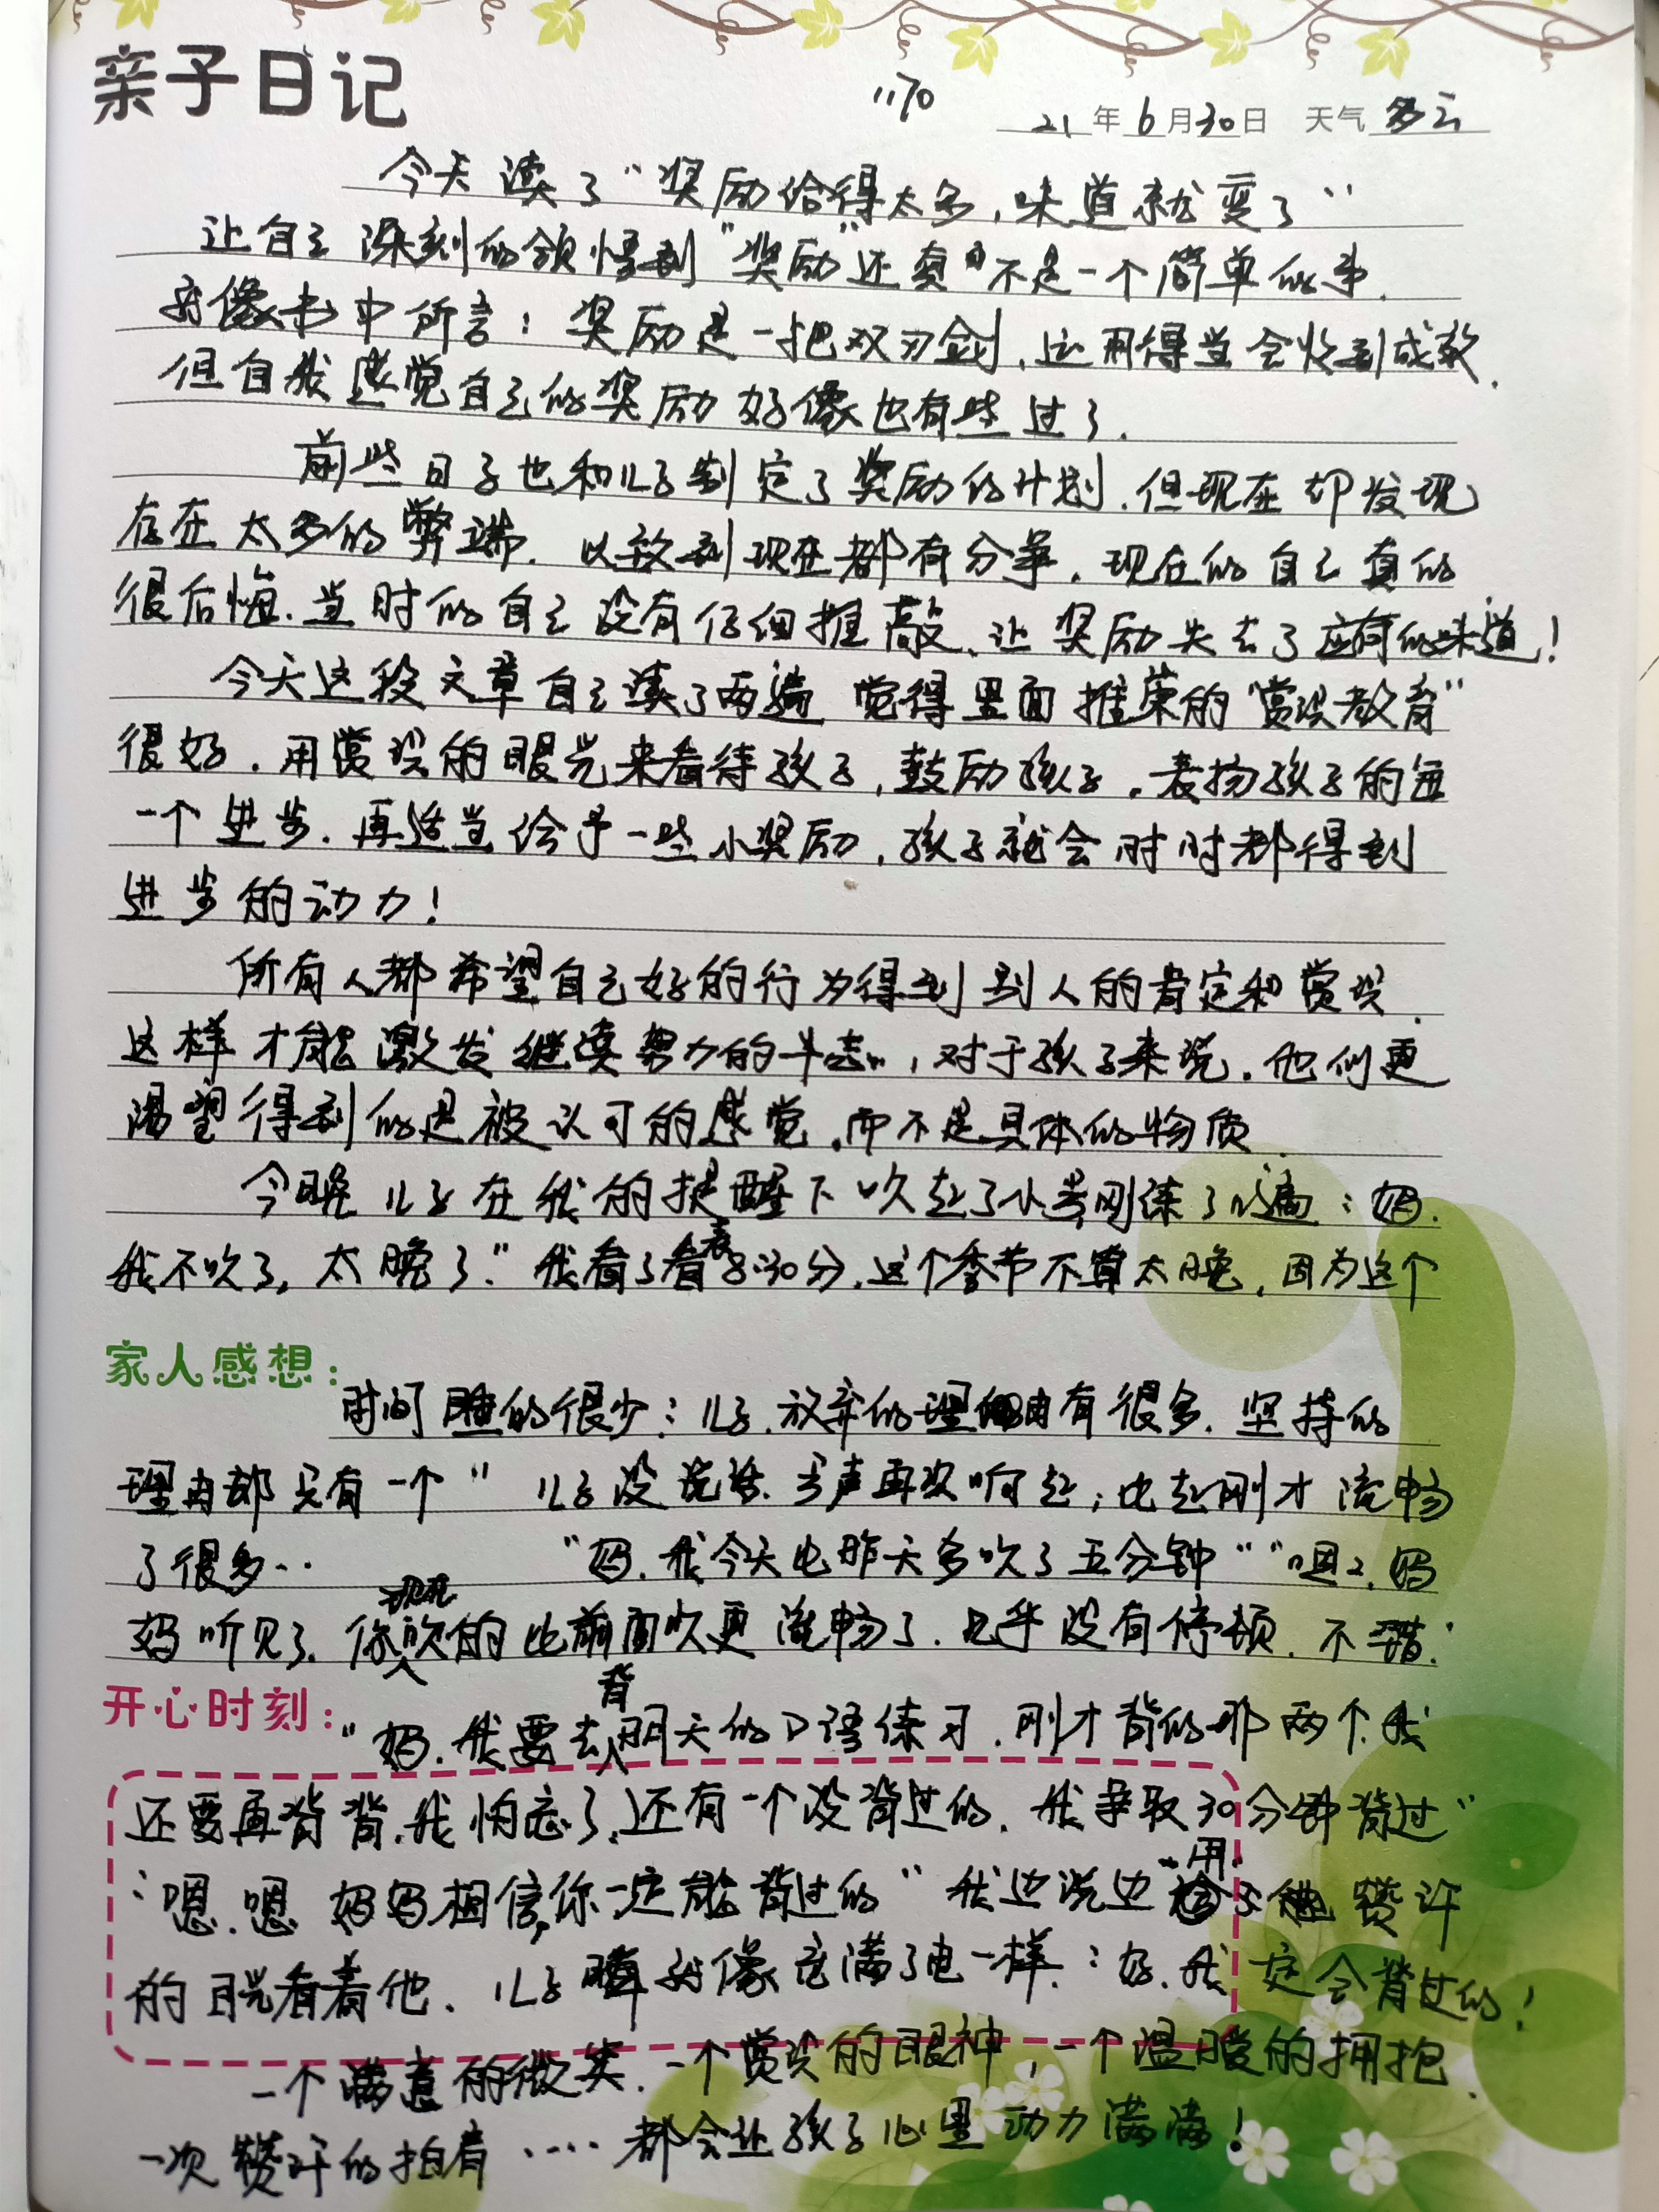 亲子日记
1170
21年6月30日 天气 多云
今天读了“奖励给得太多,味道就变了”
让自己深刻的领悟到“奖励”还真的不是一个简单的事.
就像书中所言:奖励是一把双刃剑,运用得当会收到成效.
但自我感觉自己的奖励好像也有些过了.
前些日子也和儿子制定了奖励的计划.但现在却发现
存在太多的弊端.以致到现在都有分争.现在的自己真的
很后悔.当时的自己没有仔细推敲、让奖励失去了应有的味道!
今天这段文章自己读了两遍 觉得里面推荐的“赏识教育”
很好.用赏识的眼光来看待孩子,鼓励孩子.表扬孩子的每
一个进步.再适当给予一些小奖励,孩子就会时时都得到
进步的动力!
所有人都希望自己好的行为得到别人的肯定和赏识.
这样才能激发继续努力的斗志,对于孩子来说.他们更
渴望得到的是被认可的感觉.而不是具体的物质.
今晚儿子在我的提醒下吹起了小号刚练了几遍:妈.
我不吹了,太晚了.”我看了看表8:30分.这个季节不算太晚,因为这个
家人感想:
时间睡的很少:儿子.放弃的理由有很多.坚持的
理由却只有一个” 儿子没说话.号声再次响起;比起刚才流畅
了很多… “妈.我今天比昨天多吹了五分钟”“嗯嗯.妈
妈听见了.你现在吹的比前面吹更流畅了.几乎没有停顿.不错.”
开心时刻:
“妈.我要去背明天的口语练习.刚才背的那两个.我
还要再背背.我怕忘了,还有一个没背过的.我争取30分钟背过”
“嗯.嗯 妈妈相信你一定能背过的”我边说边用 赞许
的目光看着他.儿子 就像充满了电一样.:好.我一定会背过的!
一个满意的微笑.一个赏识的眼神,一个温暖的拥抱.
一次赞许的拍肩 ····都会让孩子心里动力满满!